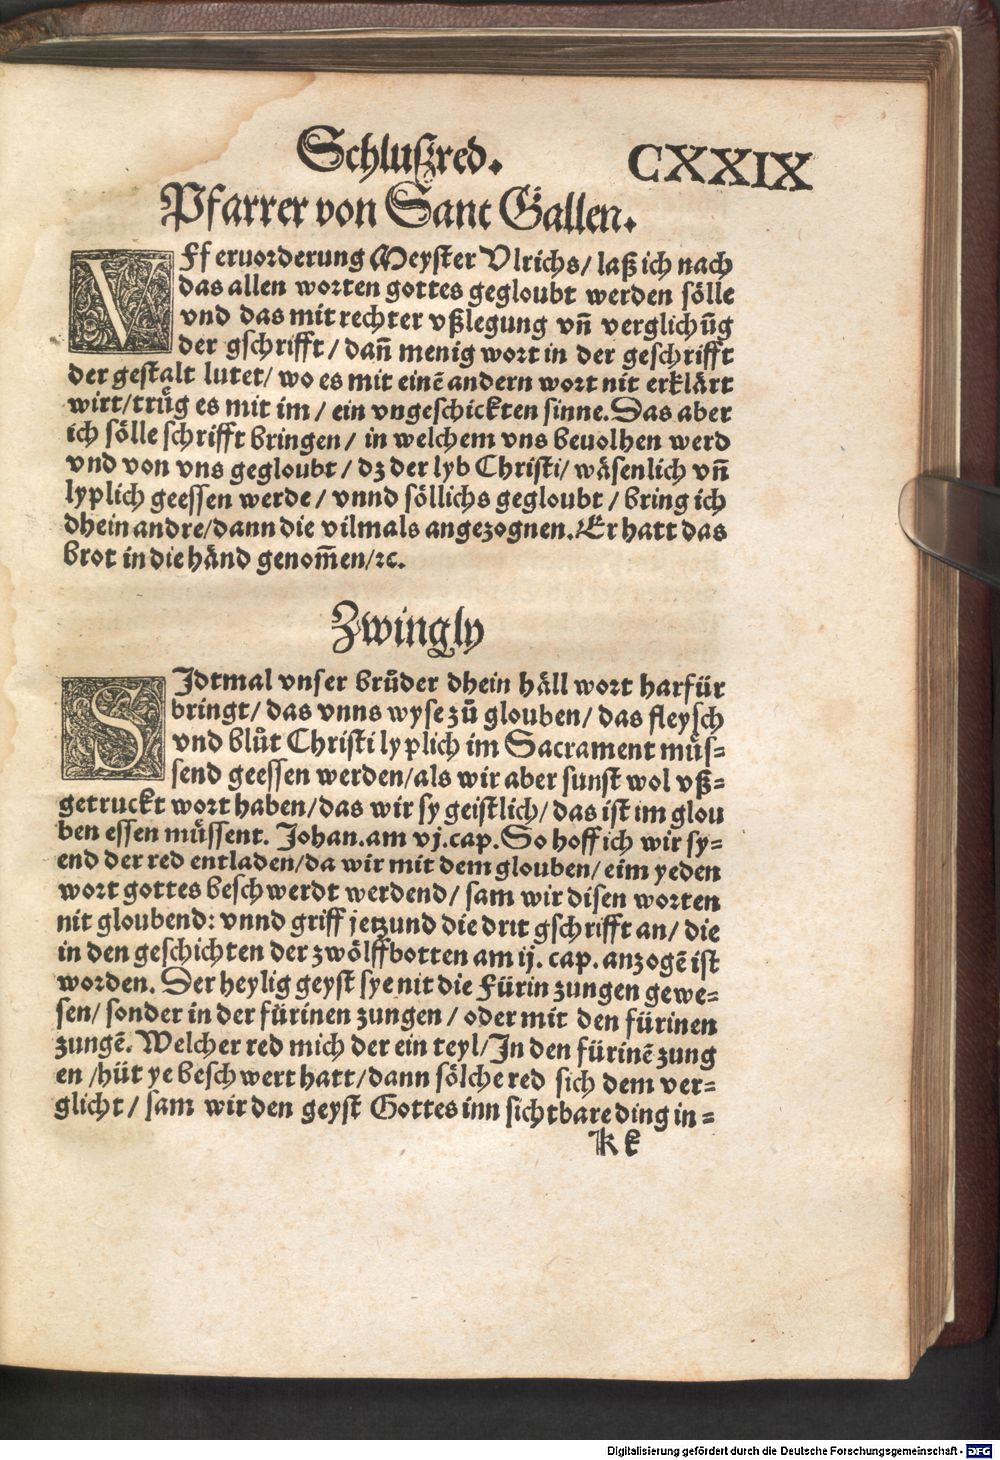 Schlußred. CXXIX
Pfarrer von Sant Gallen.
VFf eruorderung Meyster Vlrichs/ laß ich nach
das allen worten gottes gegloubt werden sölle
vnd das mit rechter vßlegung vñ verglichũg
der gschrifft/ dañ menig wort in der geschrifft
der gestalt lutet/ wo es mit einẽ andern wort nit erklärt
wirt/ trůg es mit im/ ein vngeschickten sinne. Das aber
ich sölle schrifft bringen/ in welchem vns beuolhen werd
vnd von vns gegloubt/ dz der lyb Christi/ wäsenlich vñ
lyplich geessen werde/ vnnd söllichs gegloubt/ bring ich
dhein andre/ dann die vilmals angezognen. Er hatt das
brot in die händ genom̃en/ ꝛc.
Zwingly
SJdtmal vnser brůder dhein häll wort harfür
bringt/ das vnns wyse zů glouben/ das fleysch
vnd blůt Christi lyplich im Sacrament müs-
send geessen werden/ als wir aber sunst wol vß-
getruckt wort haben/ das wir sy geistlich/ das ist im glou
ben essen müssent. Johan. am vj. cap. So hoff ich wir sy-
end der red entladen/ da wir mit dem glouben/ eim yeden
wort gottes beschwerdt werdend/ sam wir disen worten
nit gloubend: vnnd griff jetzund die drit gschrifft an/ die
in den geschichten der zwölffbotten am ij. cap. anzogẽ ist
worden. Der heylig geyst sye nit die fürin zungen gewe-
sen/ sonder in der fürinen zungen/ oder mit den fürinen
zungẽ. Welcher red mich der ein teyl/ Jn den fürinẽ zung
en/ hüt ye beschwert hatt/ dann sölche red sich dem ver-
glicht/ sam wir den geyst Gottes inn sichtbare ding in-
Kk
Digitalisierung gefördert durch die Deutsche Forschungsgemeinschaft - DFG